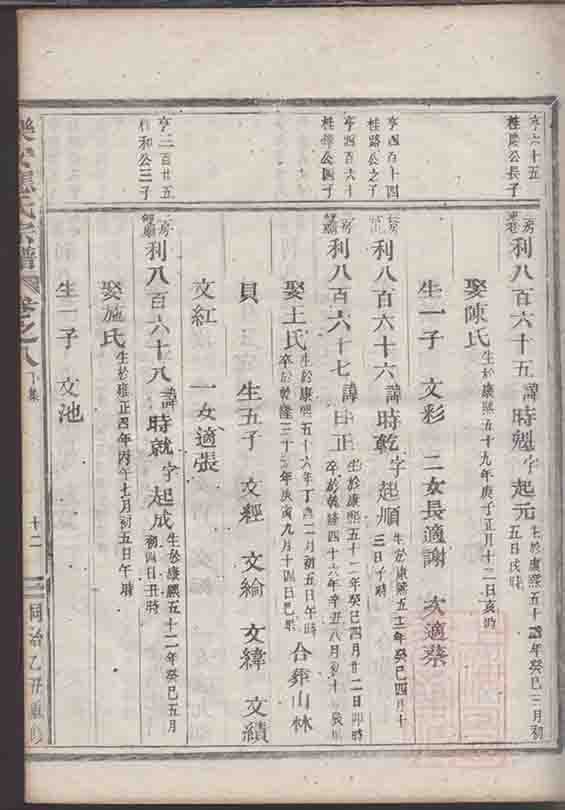 亨六十五
桂
公長子
房利八百六十五諱時魁字起元生於康熙五十二年癸巳三月初
五日戌時
娶陳氏生於康熙五十九年庚子正月十二日亥時
生一子 文彩 二女長適謝 次適蔡
亨四百十四
桂路公之子
房利八百六十六諱時乾字起順生於康熙五十二年癸巳四月十
三日子時
亨四百六十
桂
公四子
房利八百六十七諱日正生於康熙五十二年癸巳四月廿二日卯時
卒於乾隆四十六年辛丑八月
十
時
娶王氏生於康熙五十六年丁酉二月初五日午時
卒於乾隆三十
年庚寅九月十四日巳
合葬山林
貝 生五子 文經 文綸 文緯 文績
文紅 一女適張
亨二百廿五
桂和公三子
房利八百六十八諱時就字起成生於康熙五十二年癸巳五月
初四日丑時
娶施氏生於雍正四年丙午七月初五日午時
生一子 文池
氏宗譜 卷之八 下集 十二 同治乙丑重修